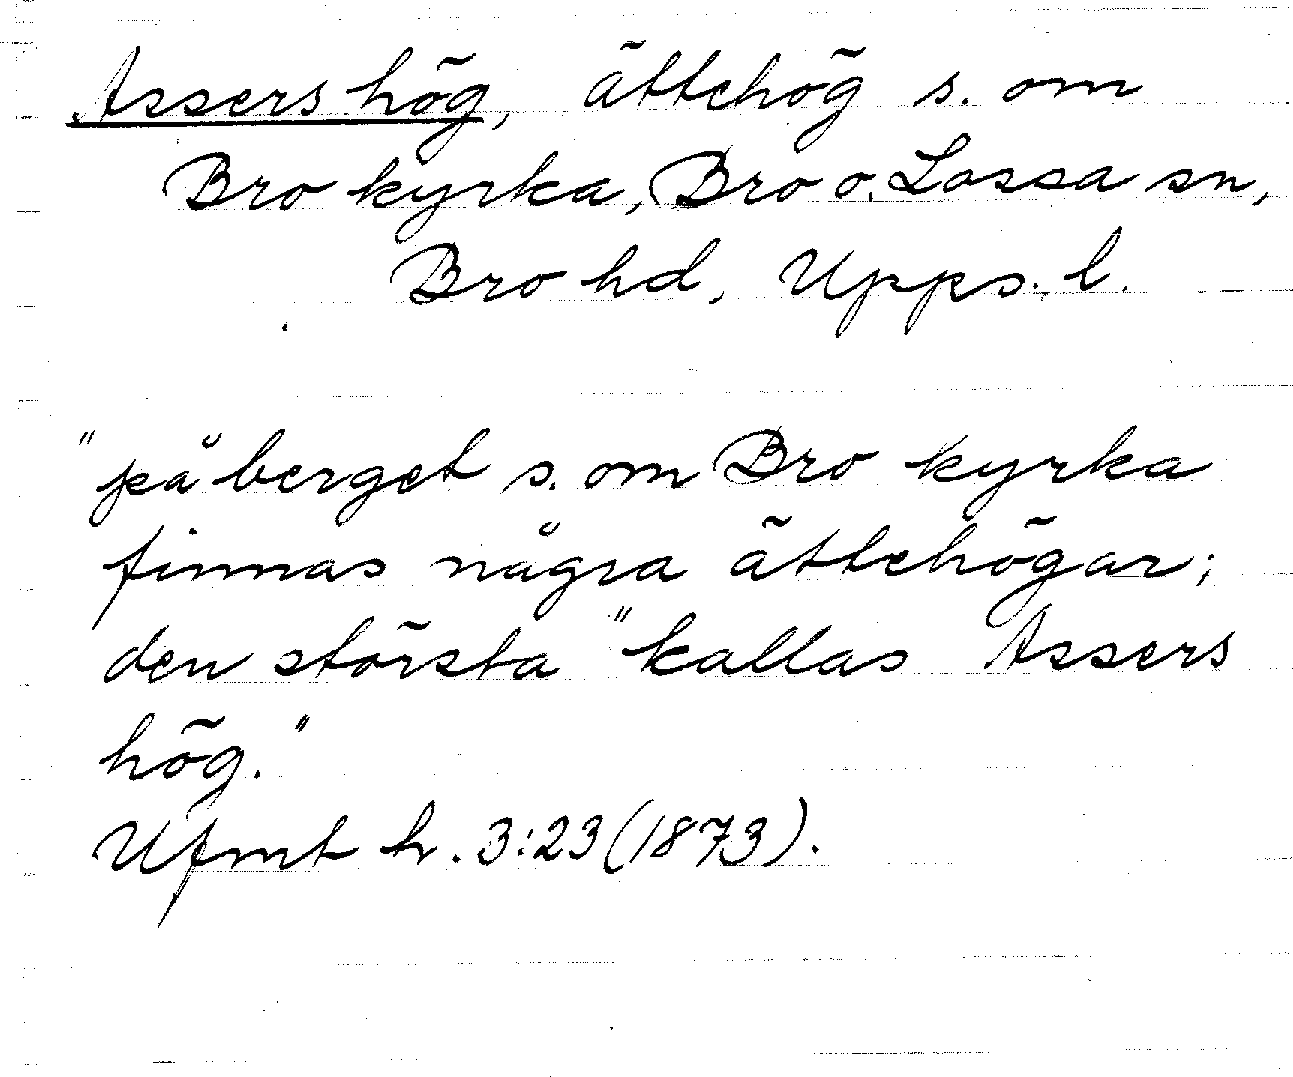 Assers hög, ättehög s. om
Bro kyrka, Bro o. Lossa sn,
Bro hd, Upps. l.
"på berget s. om Bro kyrka
finnas några ättehögar;
den största "kallas Assers
hög."
Ufmt h. 3:23 (1873).